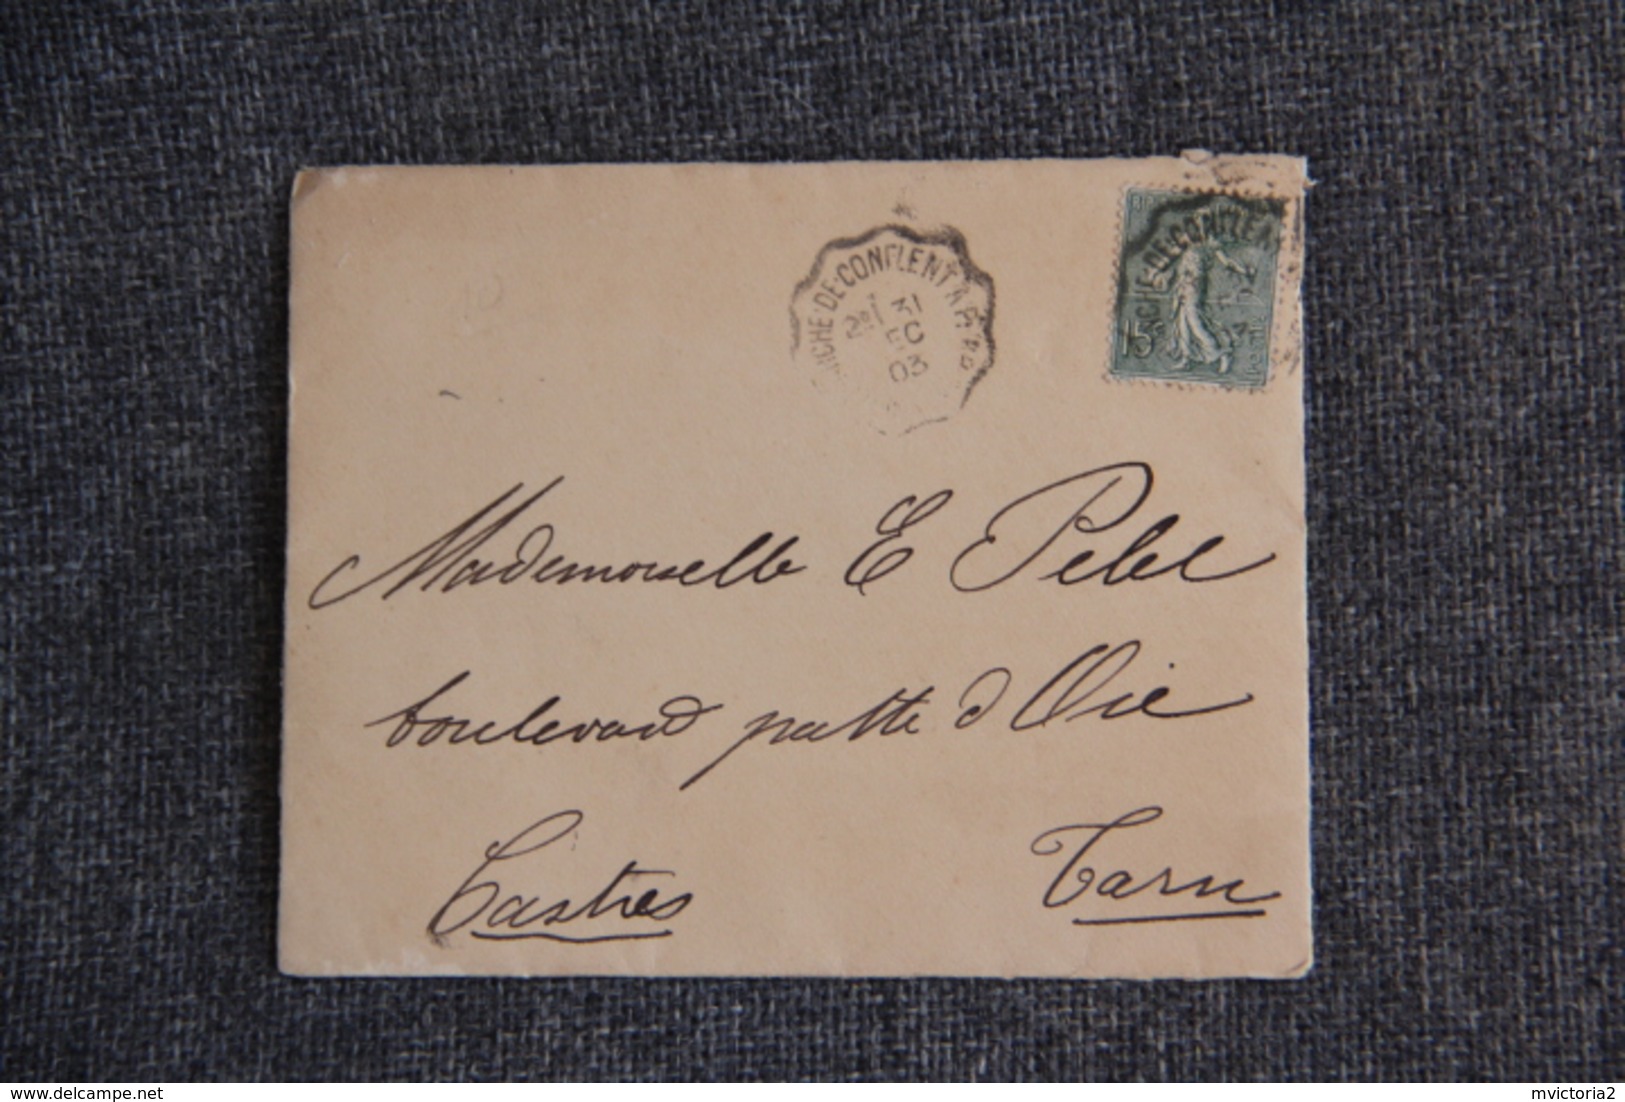 CHE-DE-CONFLENT A P
2º 31
EC
03
CHE-DE-CONFLEN
15c
Mademoiselle E Pelet
boulevard patte d Oie
Castres Tarn
delcampe.net
mvictoria2